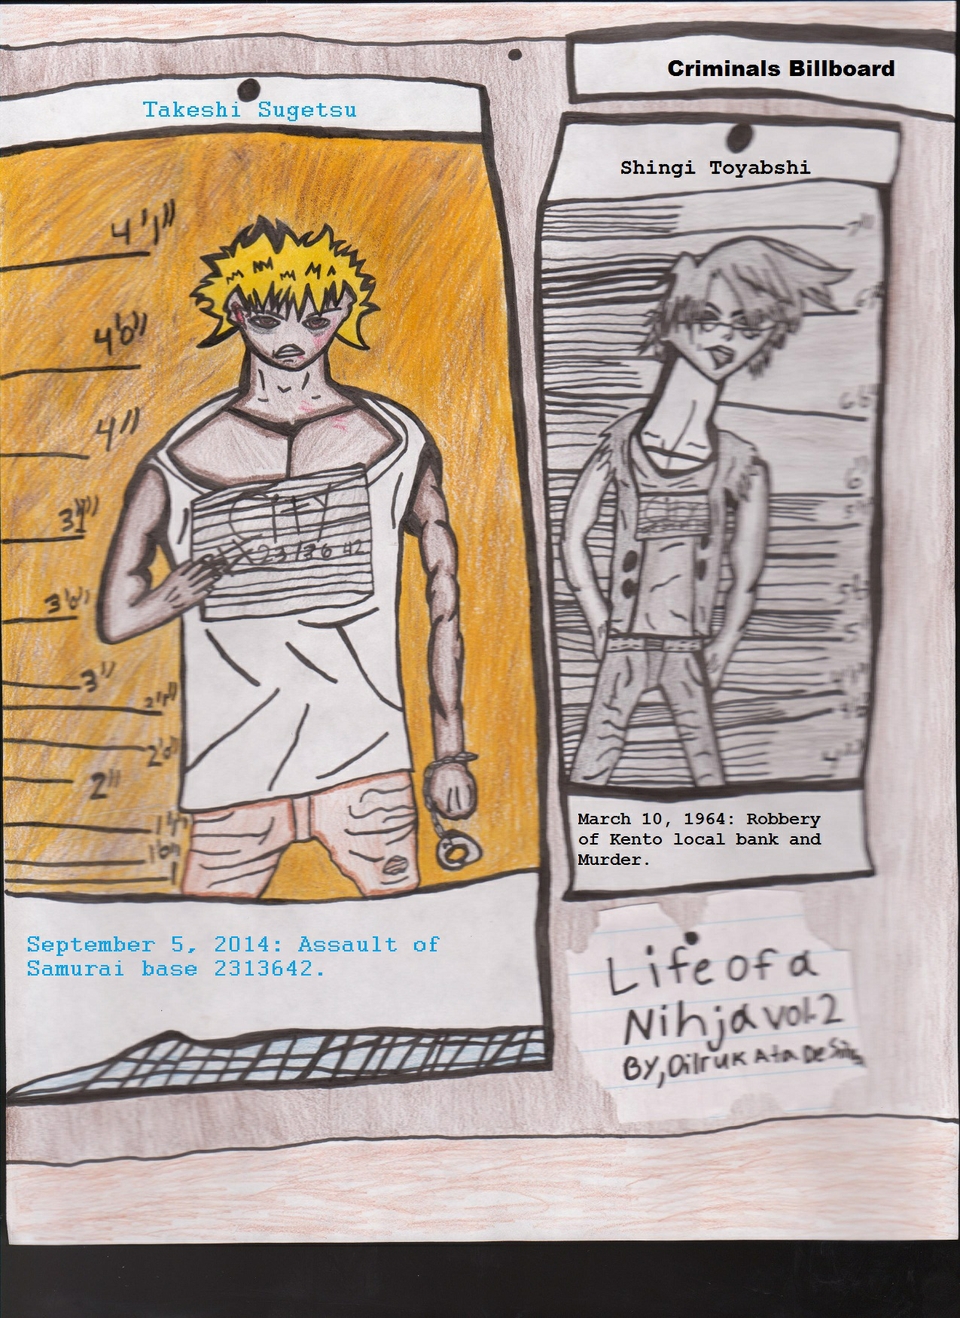 Criminals Billboard
Takeshi Sugetsu
4'1"
4'0"
4"
3"
2"
1
City
23 136 42
September 5, 2014: Assault of
Samurai base 2313642.
Shingi Toyabshi
7"
6"
City
March 10, 1964: Robbery
of Kento local bank and
Murder.
Life of a
Ninja vol.2
By, Dilruk Ata De